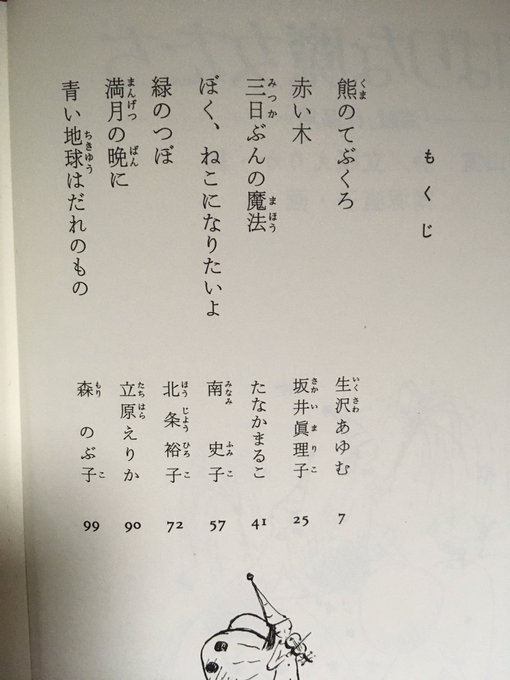 もくじ
熊のてぶくろ 生沢あゆむ 7
赤い木 坂井眞理子 25
三日ぶんの魔法 たなかまるこ 41
ぼく、ねこになりたいよ 南 史子 57
緑のつぼ 北条裕子 72
満月の晩に 立原えりか 90
青い地球はだれのもの 森 のぶ子 99